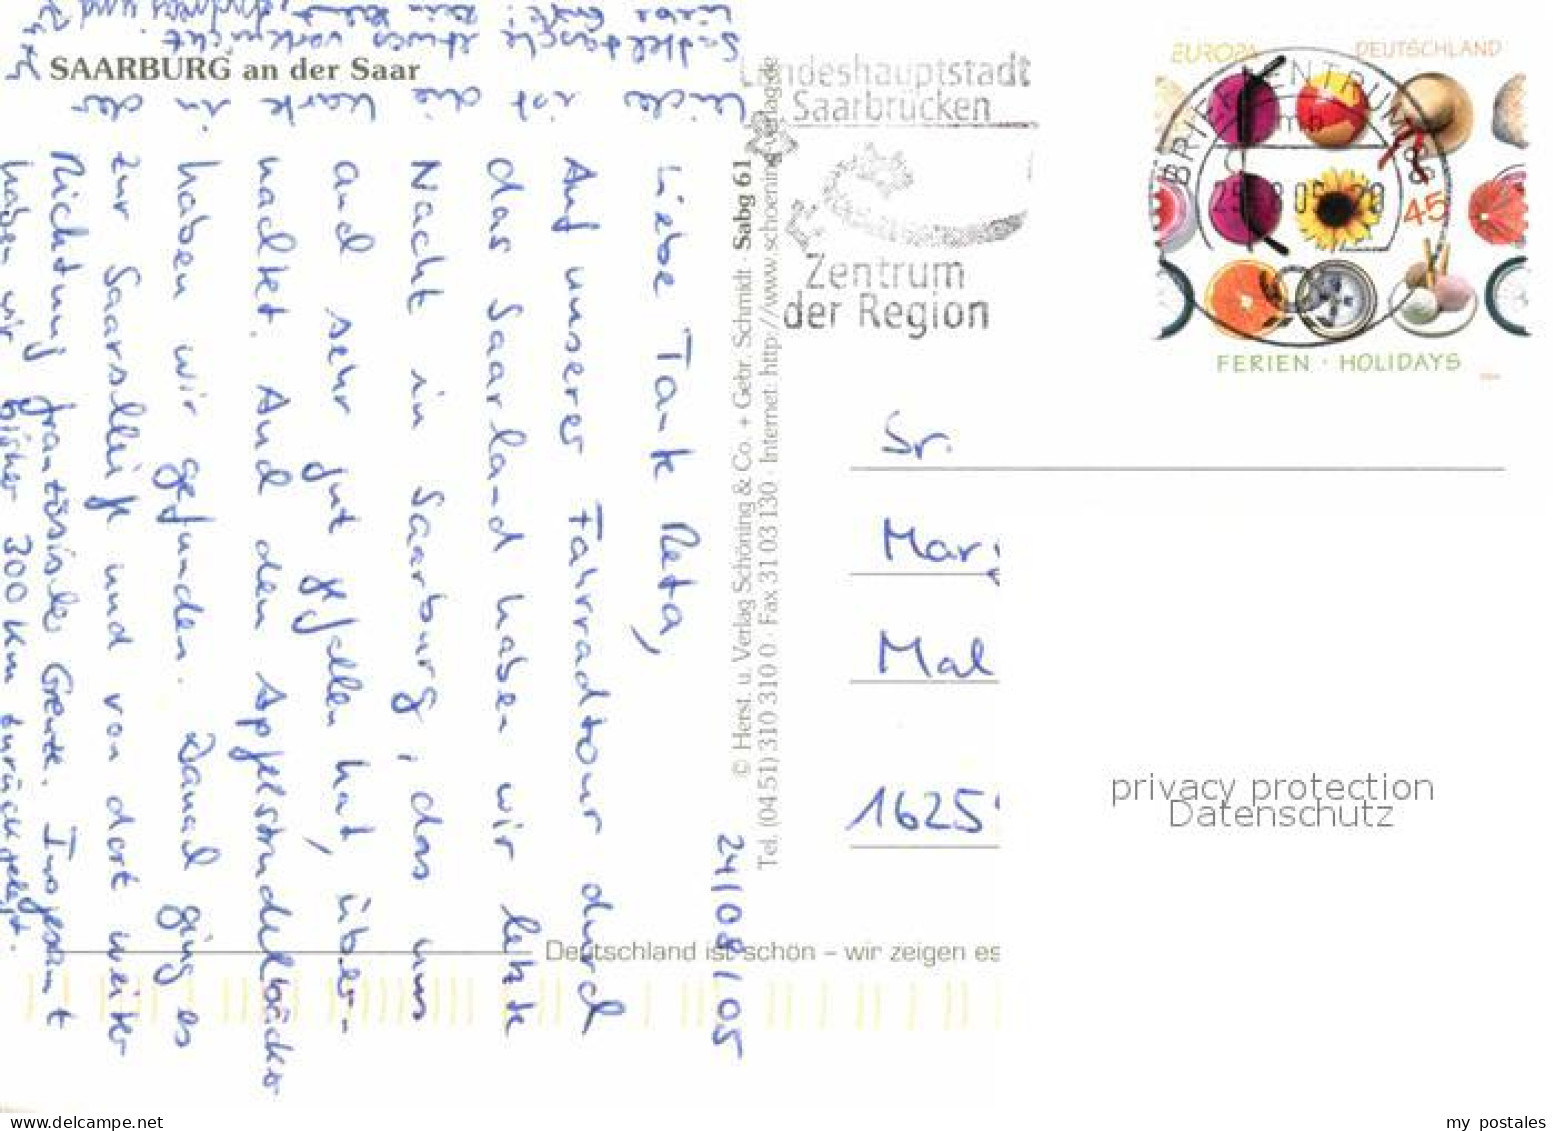 SAARBURG an der Saar
24/08/05
Liebe Tante Reta,
Auf unserer Fahrradtour durch
das Saarland haben wir letzte
Nacht in Saarburg, das uns
auch sehr gut gefallen hat, über-
nachtet. Auch den Apfelstrudelbäcker
haben wir gefunden. Danach ging es
zur Saarschleife und von dort weiter
Richtung französische Grenze. Insgesamt
haben wir bisher 300 km zurückgelegt.
Leider ist die Karte in der
Satteltasche etwas verknickt
© Herst. u. Verlag Schöning & Co. + Gebr. Schmidt · Sabg 61
Tel. (04 51) 310 310 0 · Fax 31 03 130 · Internet: http://www.schoening-verlag.de
Deutschland ist schön – wir zeigen es
Landeshauptstadt
Saarbrücken
Zentrum
der Region
EUROPA DEUTSCHLAND
BRIEFZENTRUM
45
FERIEN · HOLIDAYS
Sr.
Mar
Mal
1625
privacy protection
Datenschutz
my postales